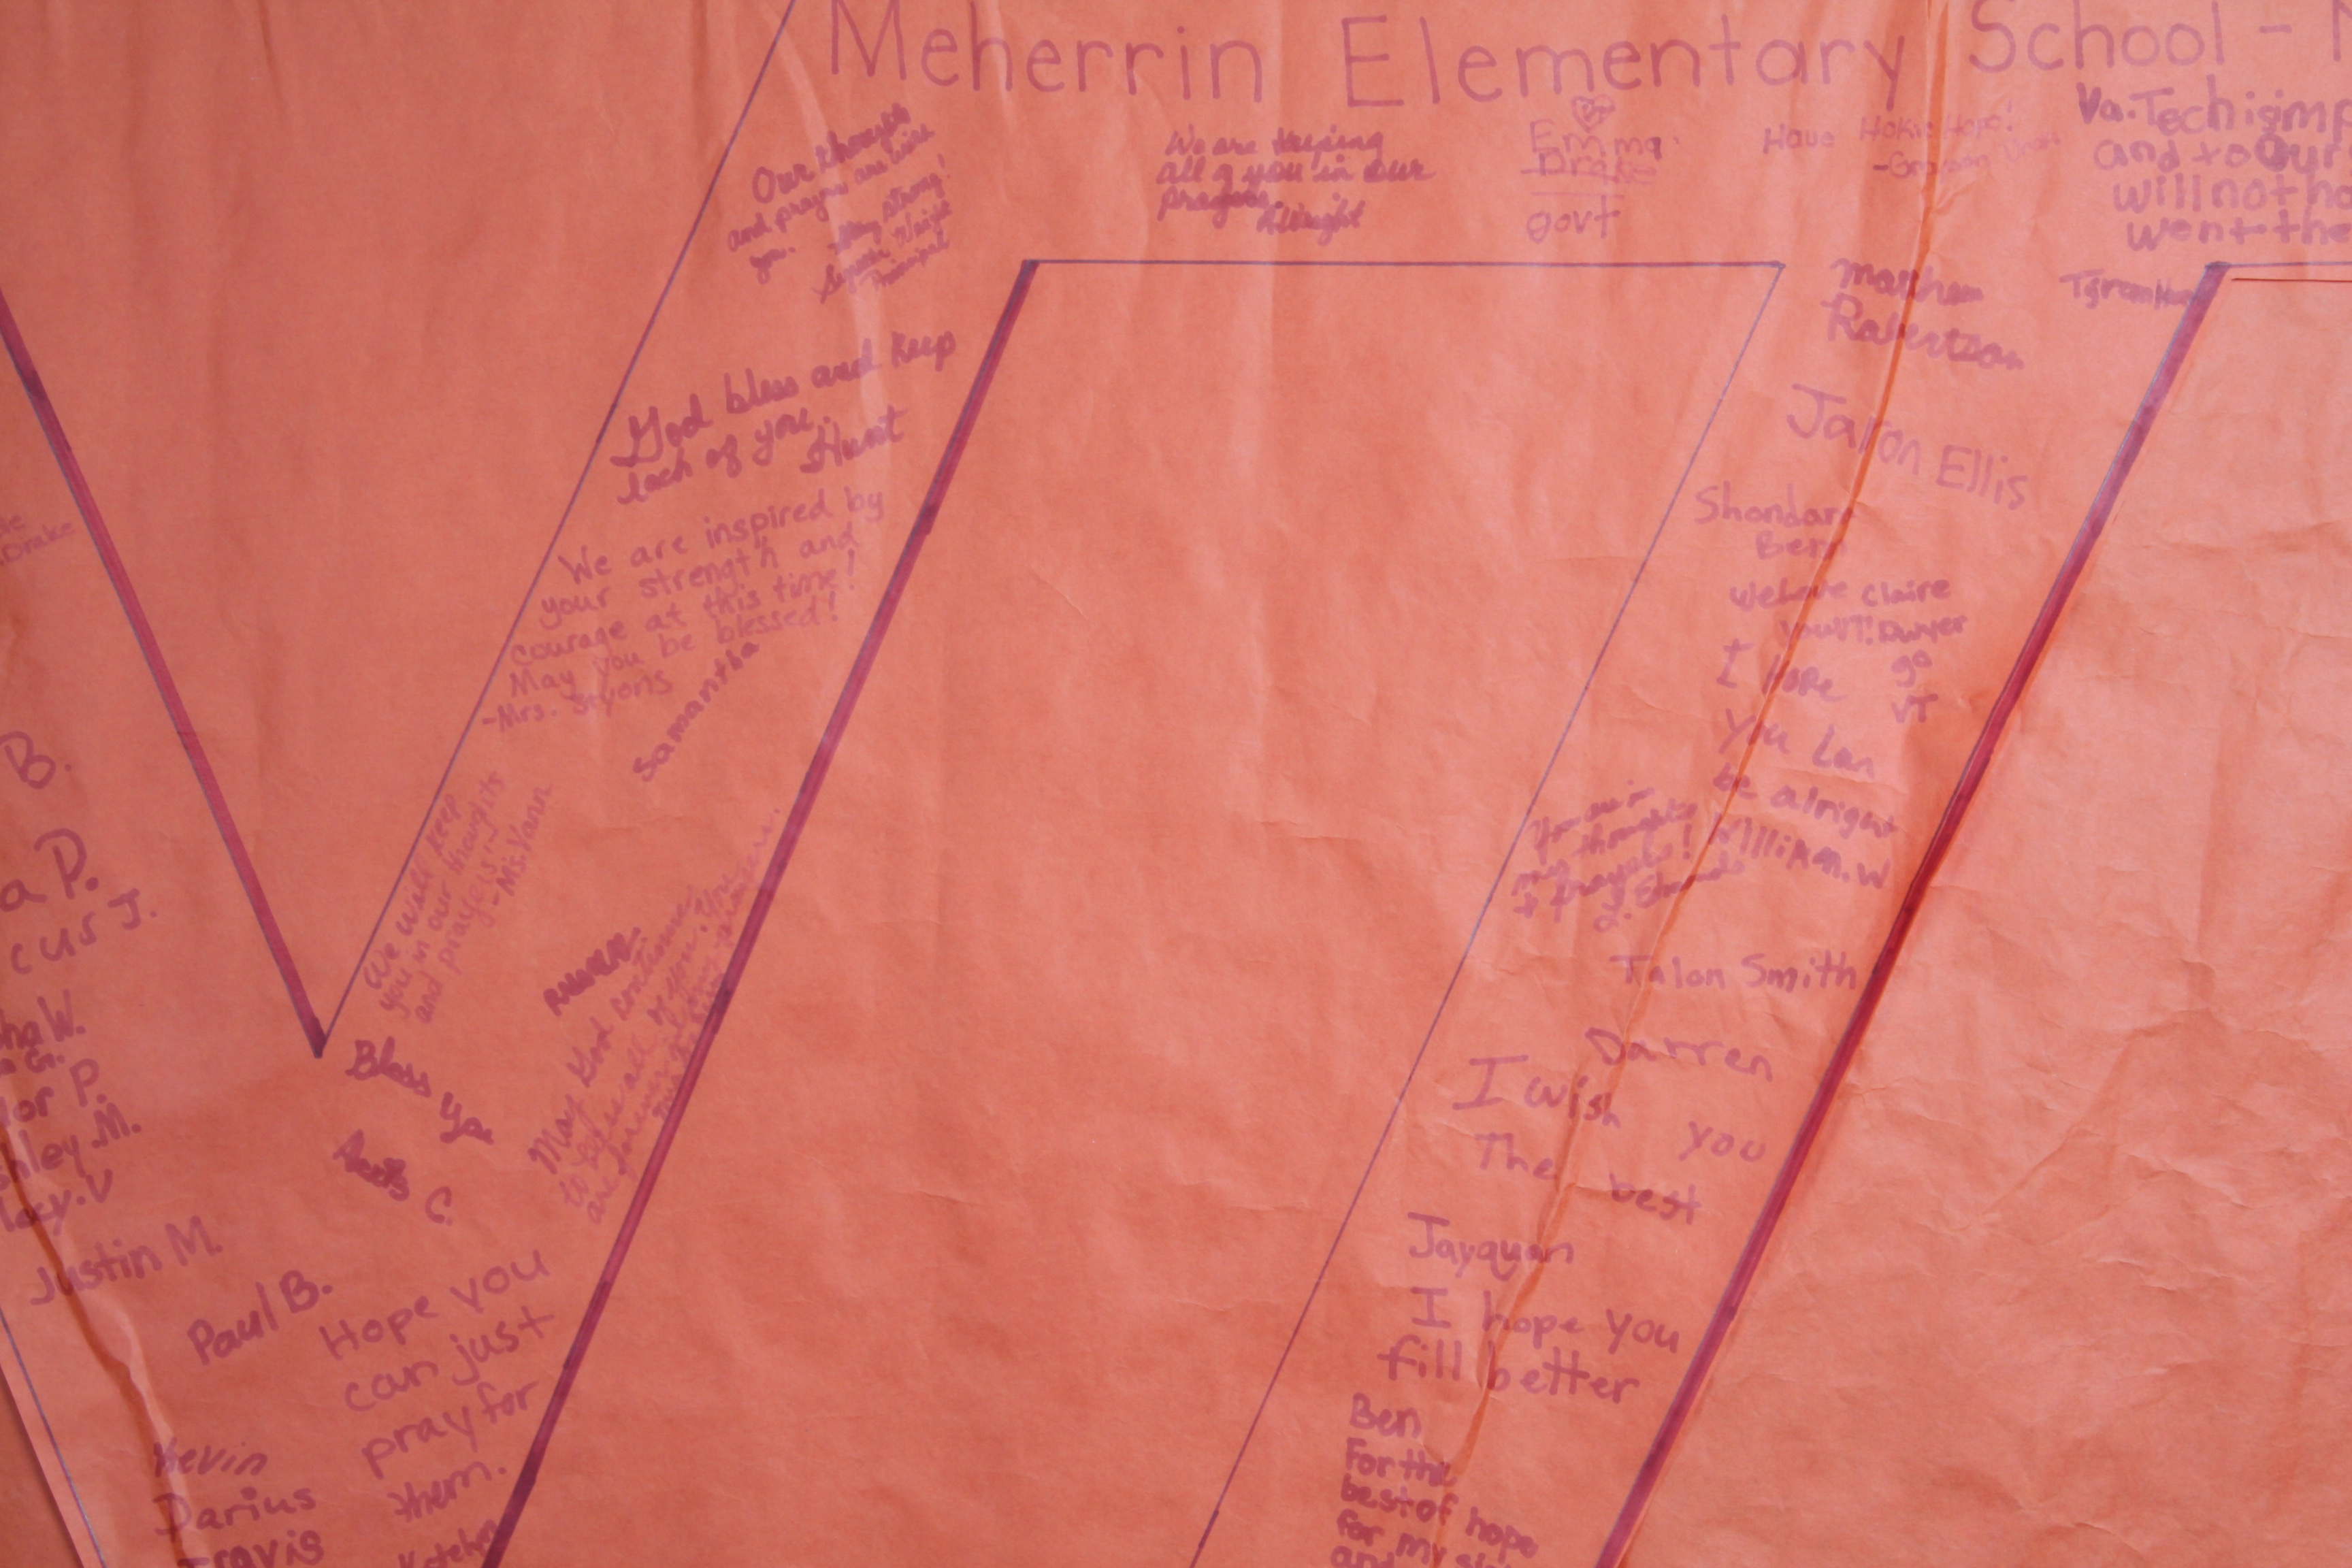 Meherrin Elementary School -
Our thoughts
and prayers are with
you. Stay strong!
Principal
We are keeping
all of you in our
prayers.
Albright
Emma
Drake
govt
Have Hokie Hope!
Va. Tech is imp
and to Our
will not ha
went the
God bless and keep
each of you.
Hunt
We are inspired by
your strength and
courage at this time!
May you be blessed!
-Mrs. Styons
Samantha
We will keep
you in our thoughts
and prayers!
-Ms. Vann
May God continue
to bless all of you. You
are forever in
my prayers.
Bless Ya
C.
Drake
B.
a P.
cus J.
ha W.
a G.
lor P.
shley M.
ley.V
Justin M.
Paul B.
Hope you
can just
pray for
them.
Kevin
Darius
Travis
Robertson
Jaron Ellis
We Love
you VT!
Claire
Dwyer
go
VT
I Hope
You Can
be alright
William.W
You are in
my thoughts
+ prayers!
Talon Smith
Darren
I wish you
The best
Jayquan
I hope you
fill better
Ben
For the
best of hope
for my
and